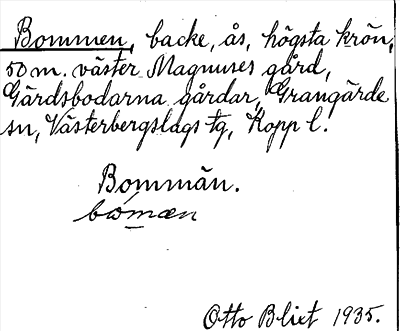 Bommen, backe, ås, högsta krön,
50 m. väster Magnuses gård,
Gärdsbodarna gårdar, Grangärde
sn, Västerbergslags tg, Kopp l.
Bommän.
bómæn
Otto Blixt 1935.